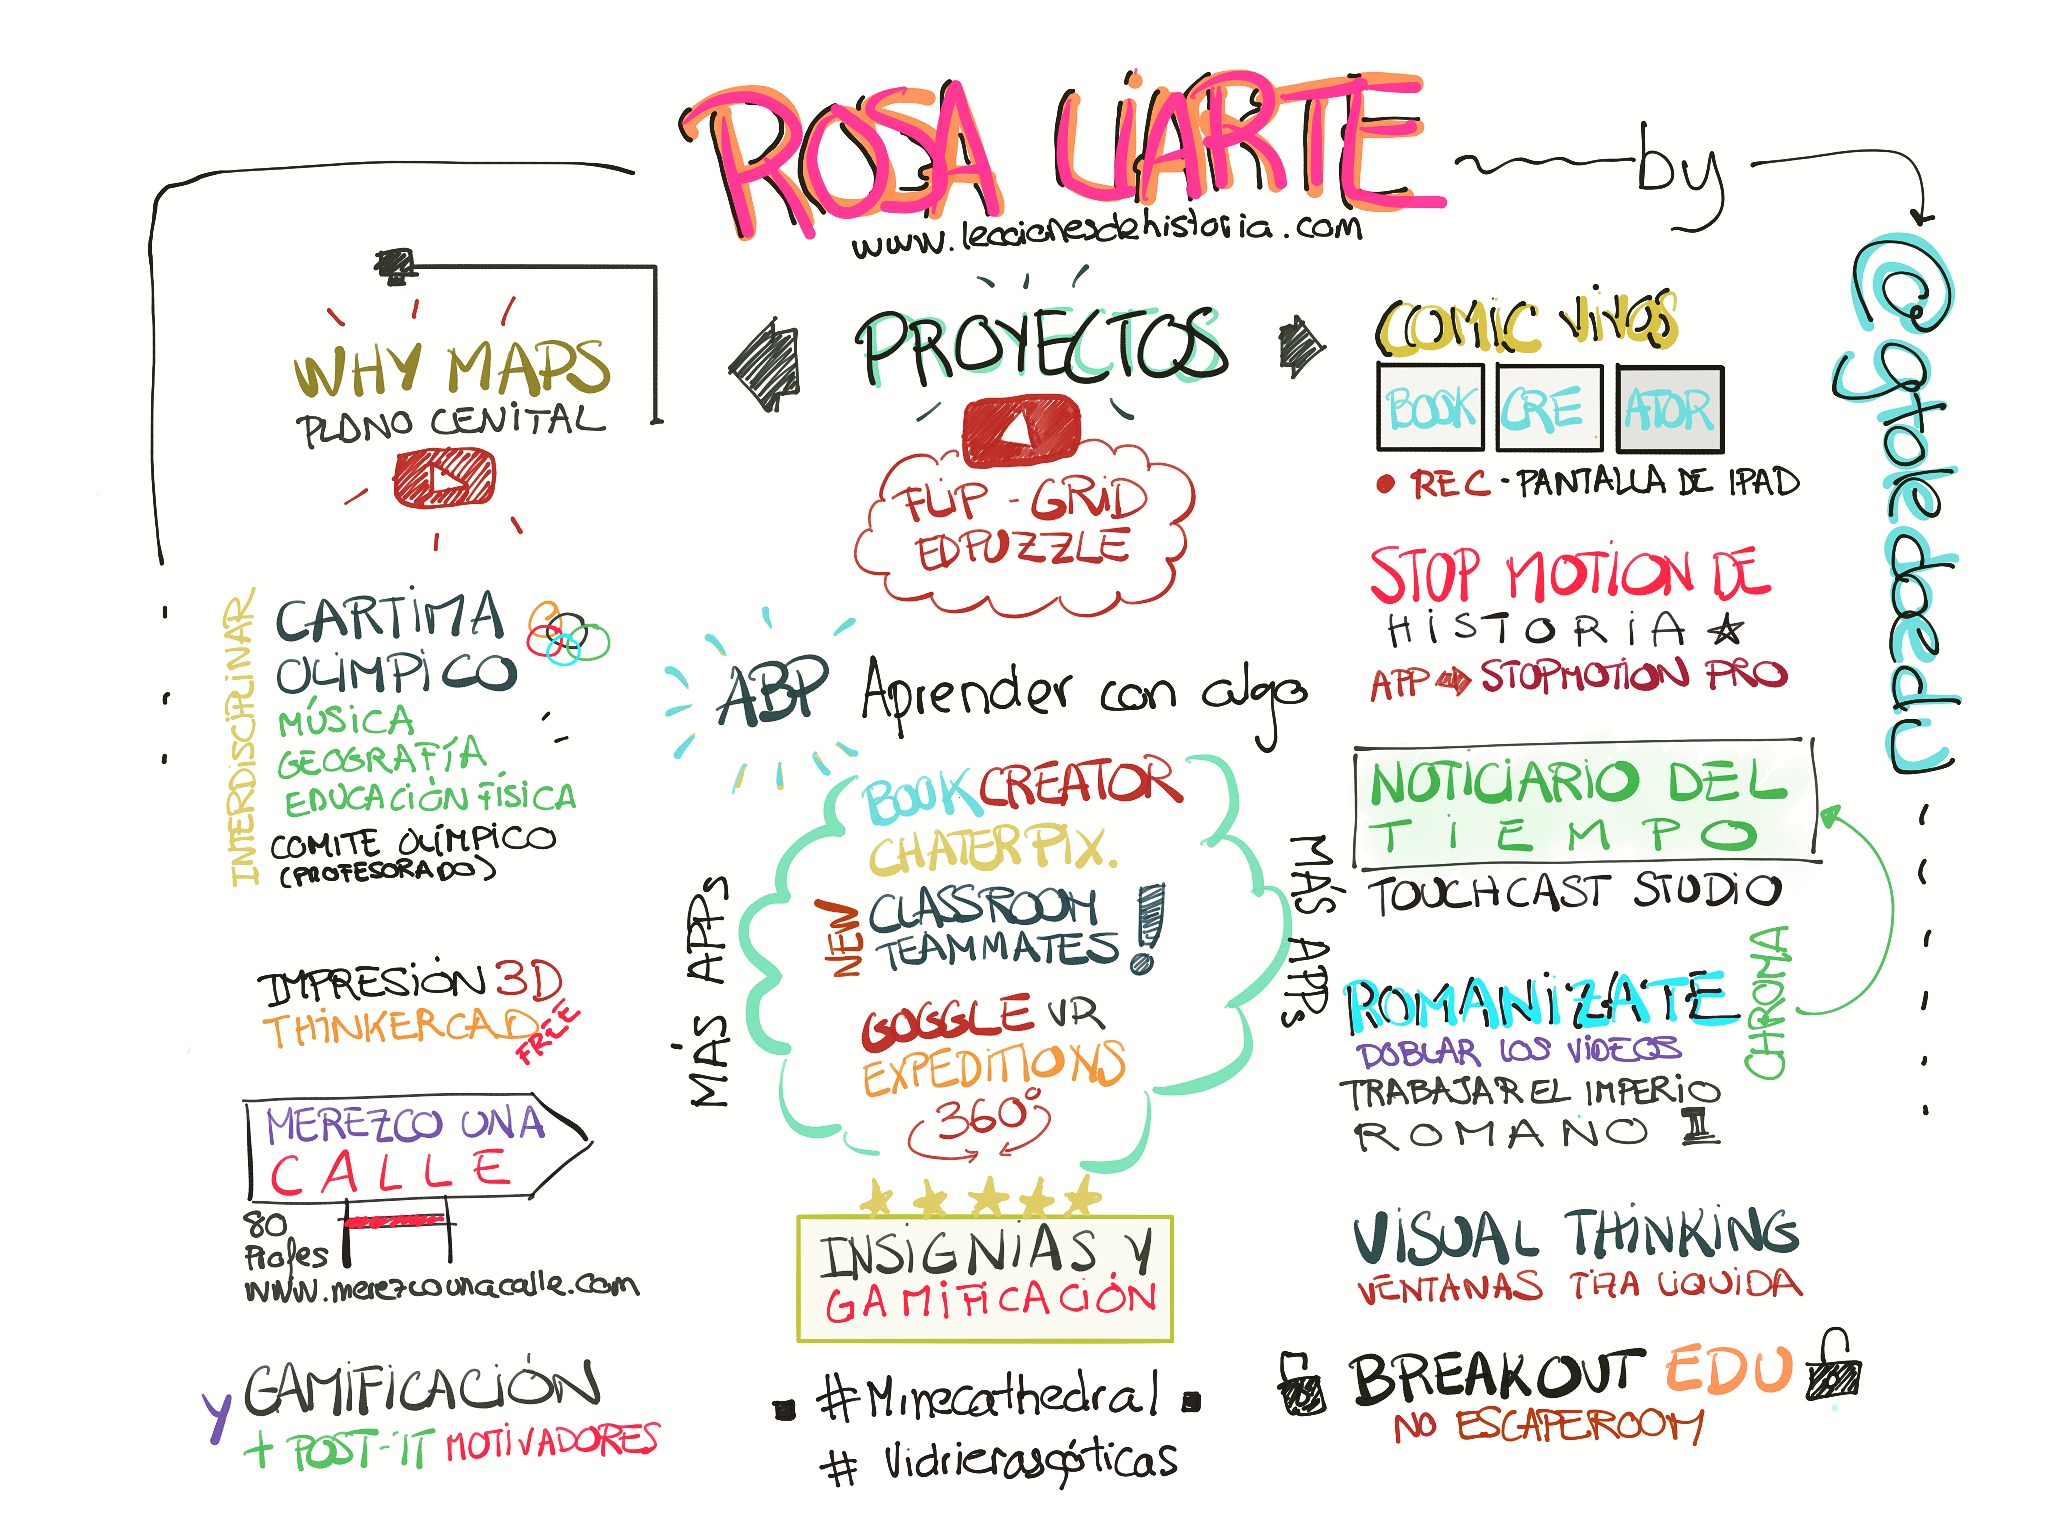 ROSA LIARTE
www.leccionesdehistoria.com
by
@gtoledoedu
WHY MAPS
PLANO CENITAL
INTERDISCIPLINAR
CARTIMA
OLIMPICO
MÚSICA
GEOGRAFÍA
EDUCACIÓN FÍSICA
COMITE OLÍMPICO
(PROFESORADO)
IMPRESIÓN 3D
THINKERCAD
FREE
MEREZCO UNA
CALLE
80
Profes
www.merezcounacalle.com
Y GAMIFICACIÓN
+ POST-IT MOTIVADORES
PROYECTOS
FLIP - GRID
EDPUZZLE
ABP Aprender con algo
MÁS APPs
BOOK CREATOR
CHATERPIX.
NEW
CLASSROOM
TEAMMATES !
GOGGLE VR
EXPEDITIONS
360°
MÁS APPs
INSIGNIAS Y
GAMIFICACIÓN
#Minecathedral
# Vidrierasgóticas
COMIC VIVOS
BOOK CRE ATOR
REC - PANTALLA DE IPAD
STOP MOTION DE
HISTORIA
APP STOPMOTION PRO
NOTICIARIO DEL
TIEMPO
TOUCHCAST STUDIO
CHROMA
ROMANIZATE
DOBLAR LOS VIDEOS
TRABAJAR EL IMPERIO
ROMANO III
VISUAL THINKING
VENTANAS TIZA LIQUIDA
BREAKOUT EDU
NO ESCAPEROOM